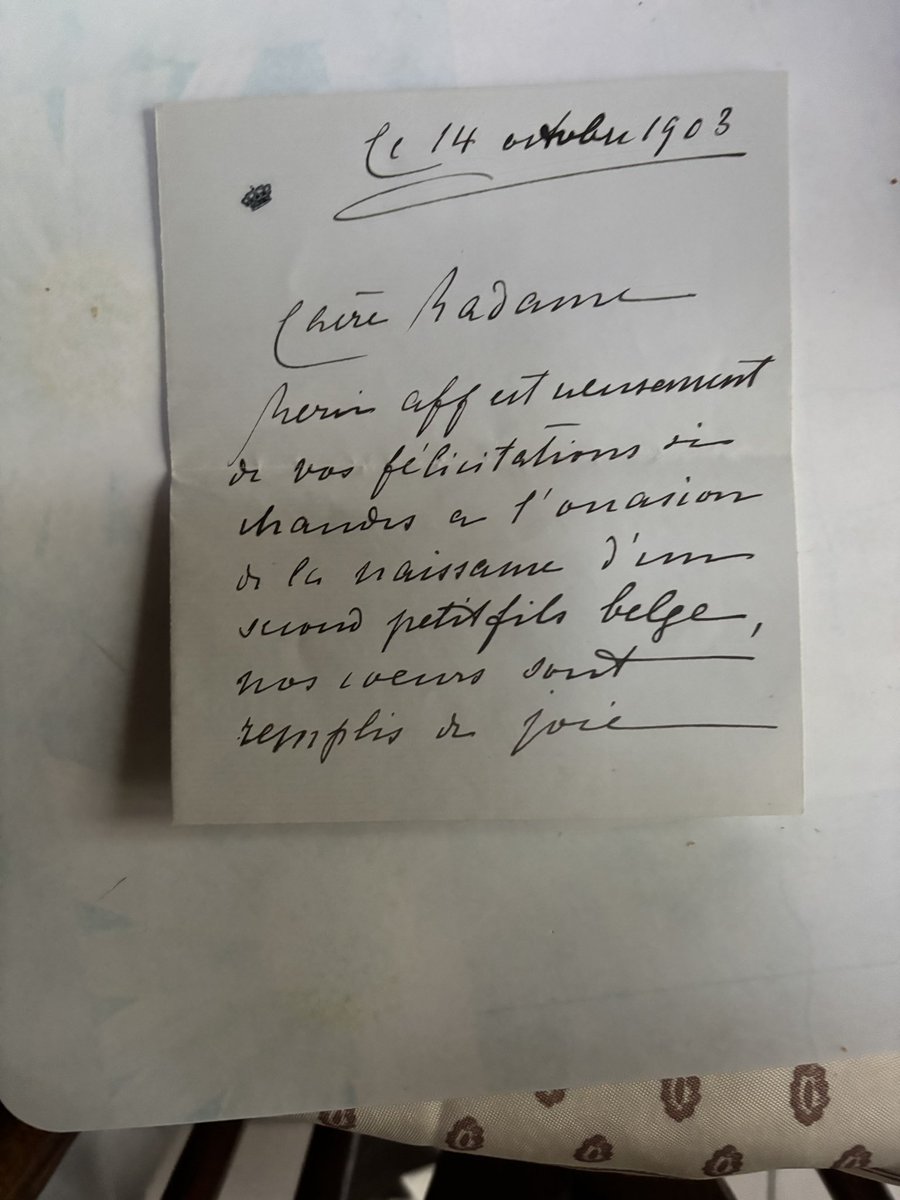 Le 14 octobre 1903
Chère Madame
Merci affectueusement
de vos félicitations si
chaudes a l'occasion
de la naissance d'un
second petit fils belge,
nos coeurs sont
remplis de joie